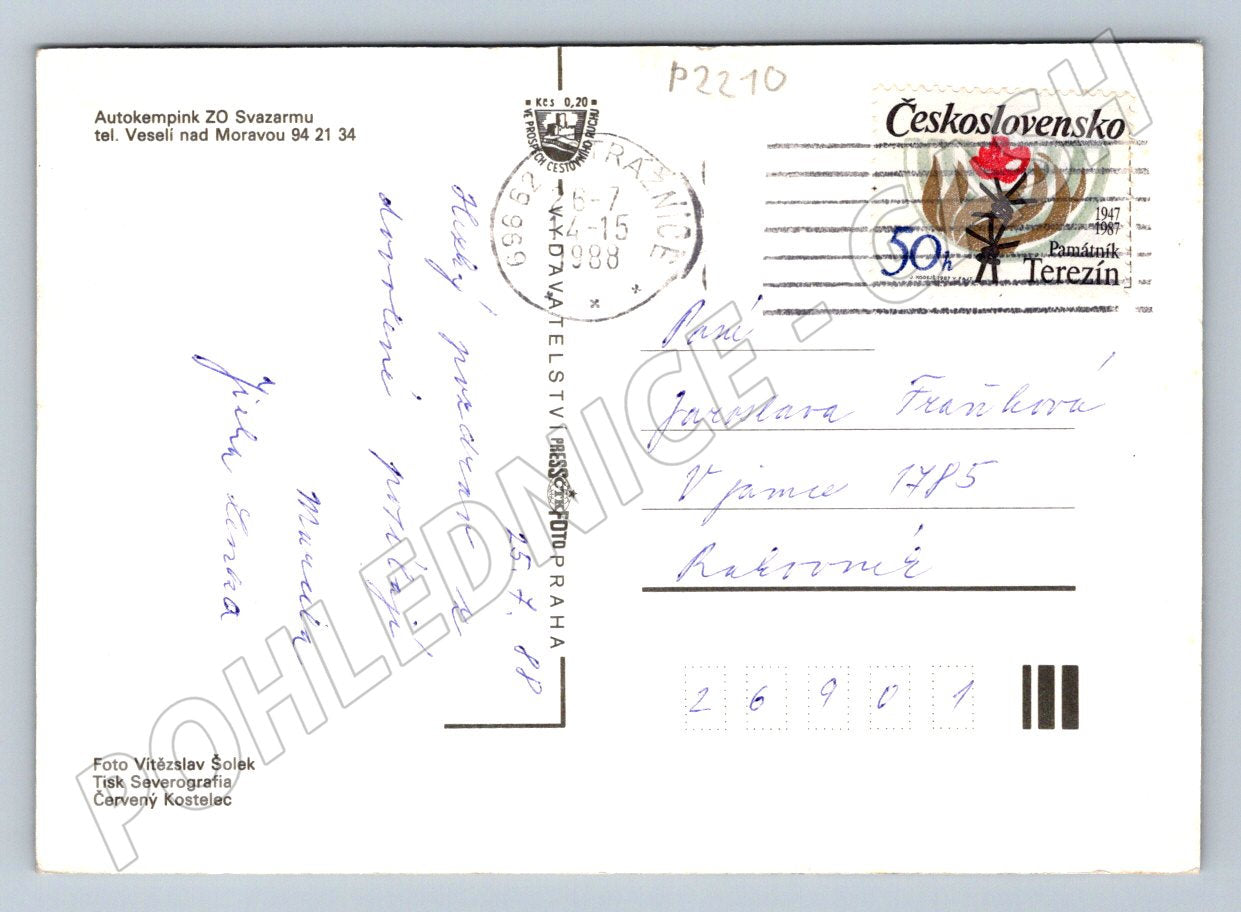 Autokempink ZO Svazarmu
tel. Veselí nad Moravou 94 21 34
P2210
Kčs 0,20
VE PROSPĚCH CESTOVNÍHO RUCHU
696 62 STRÁŽNICE
6-7
-15
1988
Československo
1947
1987
50h
Památník
Terezín
25. 7. 88
Hezký pozdrav z
dovolené posílají
Jirka Lenka
VYDAVATELSTVÍ PRESSFOTO PRAHA
ČTK
Paní
Jaroslava Fraňková
V jamce 1785
Rakovník
26901
Foto Vítězslav Šolek
Tisk Severografia
Červený Kostelec
POHLEDNICE - CZECH